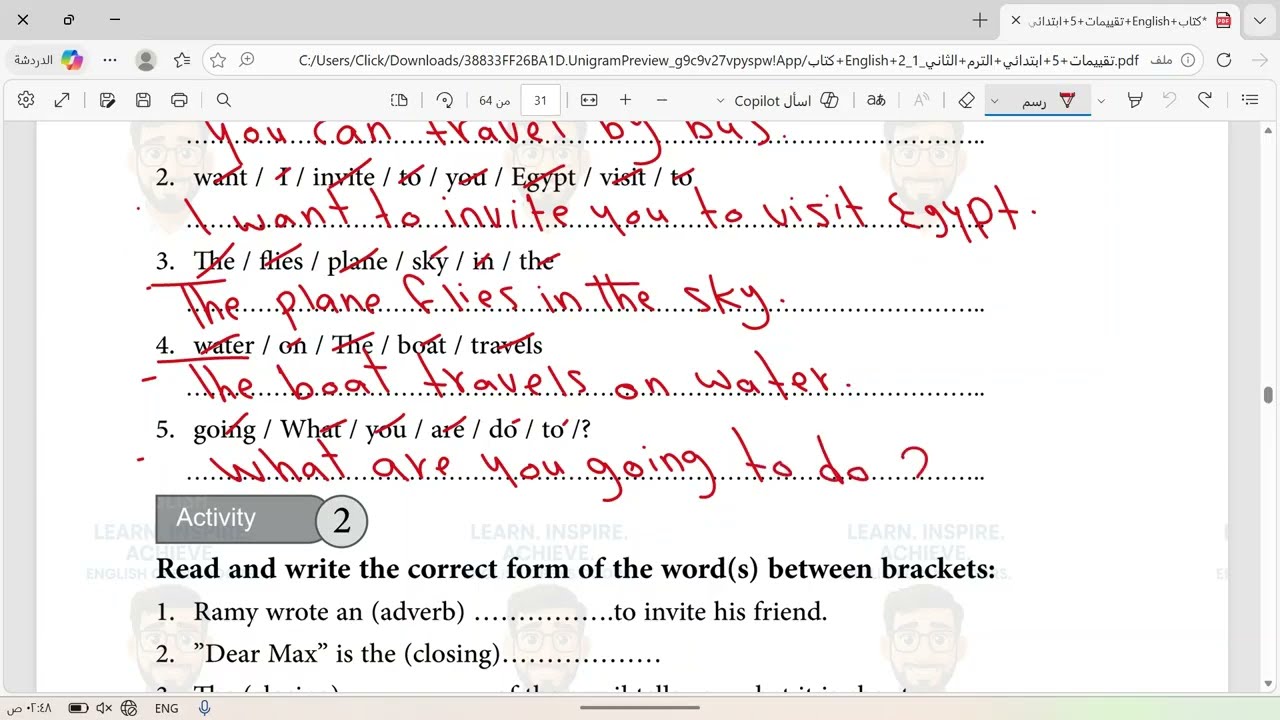 *كتاب+English+تقييمات+5+ابتدائي
الدردشة
C:/Users/Click/Downloads/38833FF26BA1D.UnigramPreview_g9c9v27vpyspw!App/كتاب+English+2_1_تقييمات+5+ابتدائي+الترم+الثاني.pdf
ملف
64 من
31
اسأل Copilot
رسم
you can travel by bus.
2. want / I / invite / to / you / Egypt / visit / to
I want to invite you to visit Egypt.
3. The / flies / plane / sky / in / the
The plane flies in the sky.
4. water / on / The / boat / travels
- The boat travels on water.
5. going / What / you / are / do / to /?
- What are you going to do ?
Activity 2
LEARN. INSPIRE. ACHIEVE.
LEARN. INSPIRE. ACHIEVE.
LEARN. INSPIRE. ACHIEVE.
Read and write the correct form of the word(s) between brackets:
1. Ramy wrote an (adverb) …………….to invite his friend.
2. ”Dear Max” is the (closing)………………
٠٢:٤٨ ص
ENG